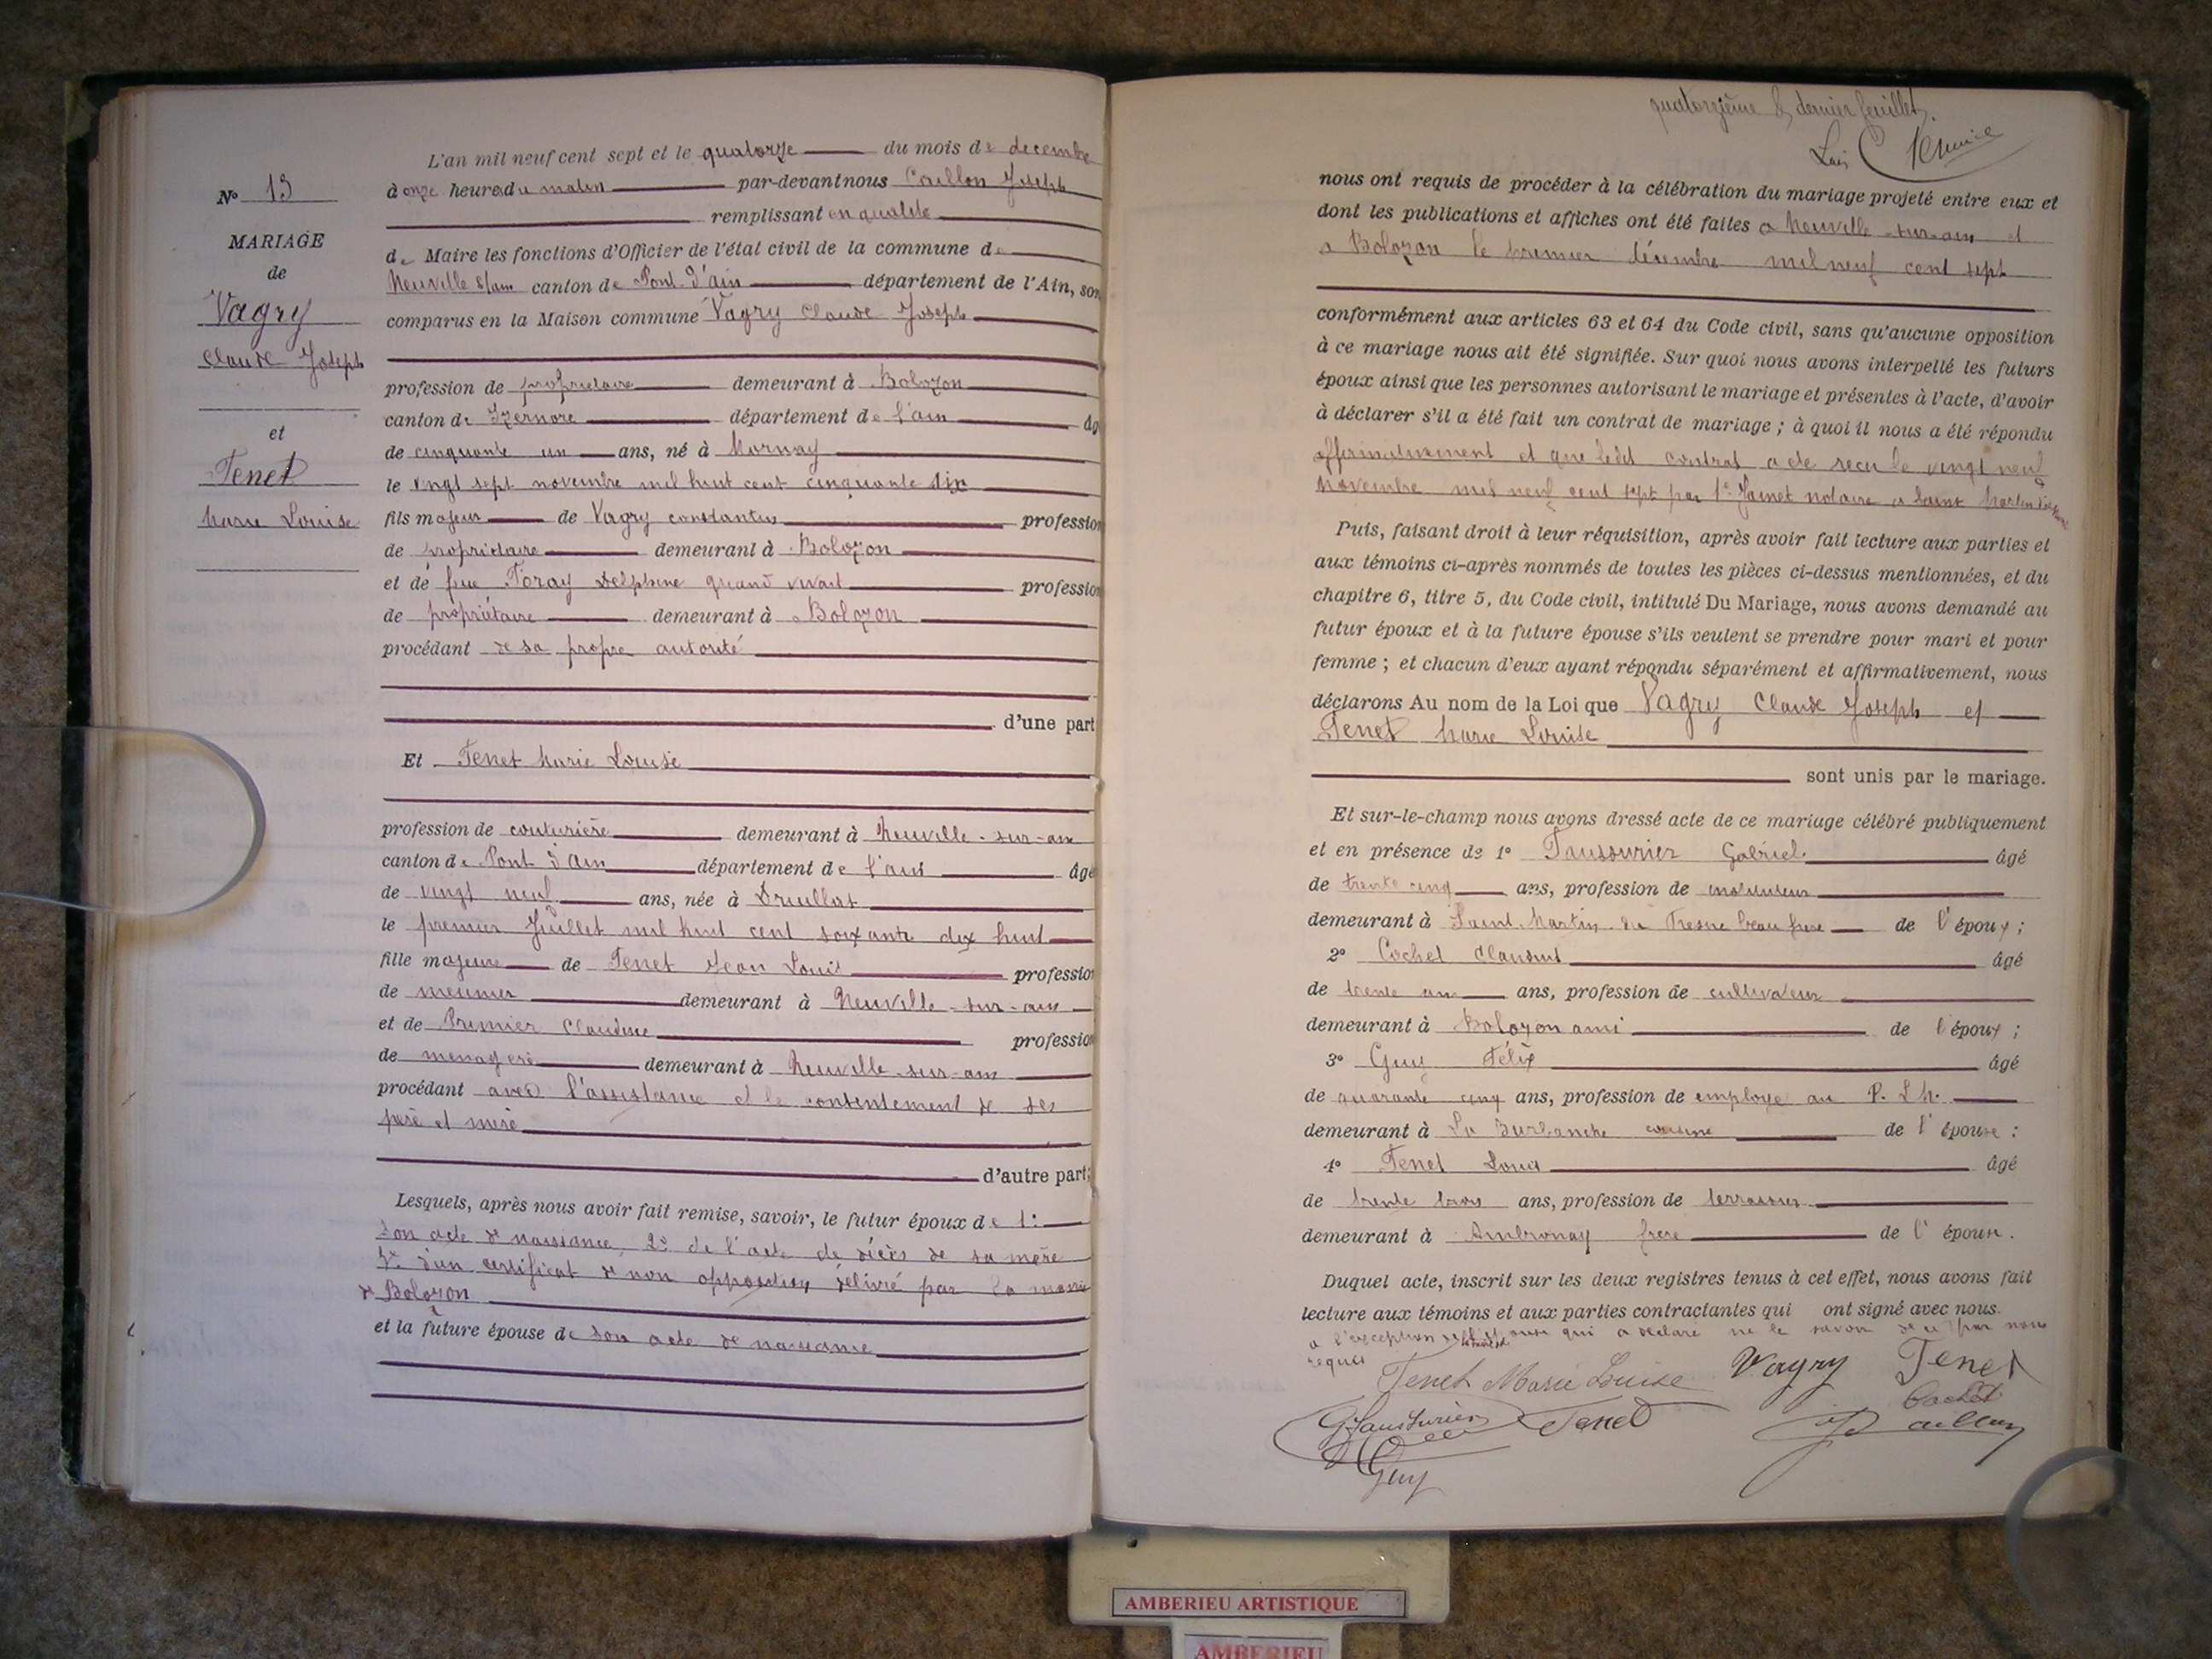 N° 13
MARIAGE
de
Vagry
Claude Joseph
et
Tenet
Marie Louise
L'an mil neuf cent sept et le quatorze du mois de decembre
à onze heures du matin par-devant nous Caillon Joseph
remplissant en qualité
de Maire les fonctions d'Officier de l'état civil de la commune de
Neuville s/ain canton de Pont d'ain département de l'Ain, son
comparus en la Maison commune Vagry Claude Joseph
profession de propriétaire demeurant à Bolozon
canton de Izernore département de l'ain âg
de cinquante un ans, né à Mornay
le vingt sept novembre mil huit cent cinquante six
fils majeur de Vagry constantin profession
de propriétaire demeurant à Bolozon
et de feue Foray Delphine quand vivait profession
de propriétaire demeurant à Bolozon
procédant de sa propre autorité
d'une part
Et Tenet Marie Louise
profession de couturière demeurant à Neuville-sur-ain
canton de Pont d'ain département de l'ain âgé
de vingt neuf ans, née à Druillat
le premier Juillet mil huit cent soixante dix huit
fille majeure de Tenet Jean Louis profession
de meunier demeurant à Neuville-sur-ain
et de Premier Claudine profession
de menagère demeurant à Neuville-sur-ain
procédant avec l'assistance et le consentement de ses
père et mère
d'autre part;
Lesquels, après nous avoir fait remise, savoir, le futur époux de 1°
son acte de naissance, 2° de l'acte de décès de sa mère
3° d'un certificat de non opposition délivré par la mairie
de Bolozon
et la future épouse de son acte de naissance
quatorzième & dernier feuillet.
nous ont requis de procéder à la célébration du mariage projeté entre eux et
dont les publications et affiches ont été faites à Neuville-sur-ain et
à Bolozon le premier décembre mil neuf cent sept
conformément aux articles 63 et 64 du Code civil, sans qu'aucune opposition
à ce mariage nous ait été signifiée. Sur quoi nous avons interpellé les futurs
époux ainsi que les personnes autorisant le mariage et présentes à l'acte, d'avoir
à déclarer s'il a été fait un contrat de mariage ; à quoi il nous a été répondu
affirmativement et que ledit contrat a été reçu le vingt neuf
novembre mil neuf cent sept par notaire à Saint Martin
Puis, faisant droit à leur réquisition, après avoir fait lecture aux parties et
aux témoins ci-après nommés de toutes les pièces ci-dessus mentionnées, et du
chapitre 6, titre 5, du Code civil, intitulé Du Mariage, nous avons demandé au
futur époux et à la future épouse s'ils veulent se prendre pour mari et pour
femme ; et chacun d'eux ayant répondu séparément et affirmativement, nous
déclarons Au nom de la Loi que Vagry Claude Joseph et
Tenet Marie Louise
sont unis par le mariage.
Et sur-le-champ nous avons dressé acte de ce mariage célébré publiquement
et en présence de 1° Taussurier Gabriel âgé
de trente cinq ans, profession de instituteur
demeurant à Saint-Martin-du Fresne beau frère de l'époux ;
2° Cochet Claudius âgé
de trente ans, profession de cultivateur
demeurant à Bolozon ami de l'époux ;
3° Guy Félix âgé
de quarante cinq ans, profession de employé au P. L M.
demeurant à La de l'épouse ;
4° Tenet Louis âgé
de trente trois ans, profession de terrassier
demeurant à Ambronay frère de l'épouse.
Duquel acte, inscrit sur les deux registres tenus à cet effet, nous avons fait
lecture aux témoins et aux parties contractantes qui ont signé avec nous.
à l'exception qui a déclaré ne le savoir de ce par nous
requis
Tenet Marie Louise Vagry Tenet
Cochet
G Taussurier Tenet Caillon
Guy
AMBERIEU ARTISTIQUE
AMBERIEU